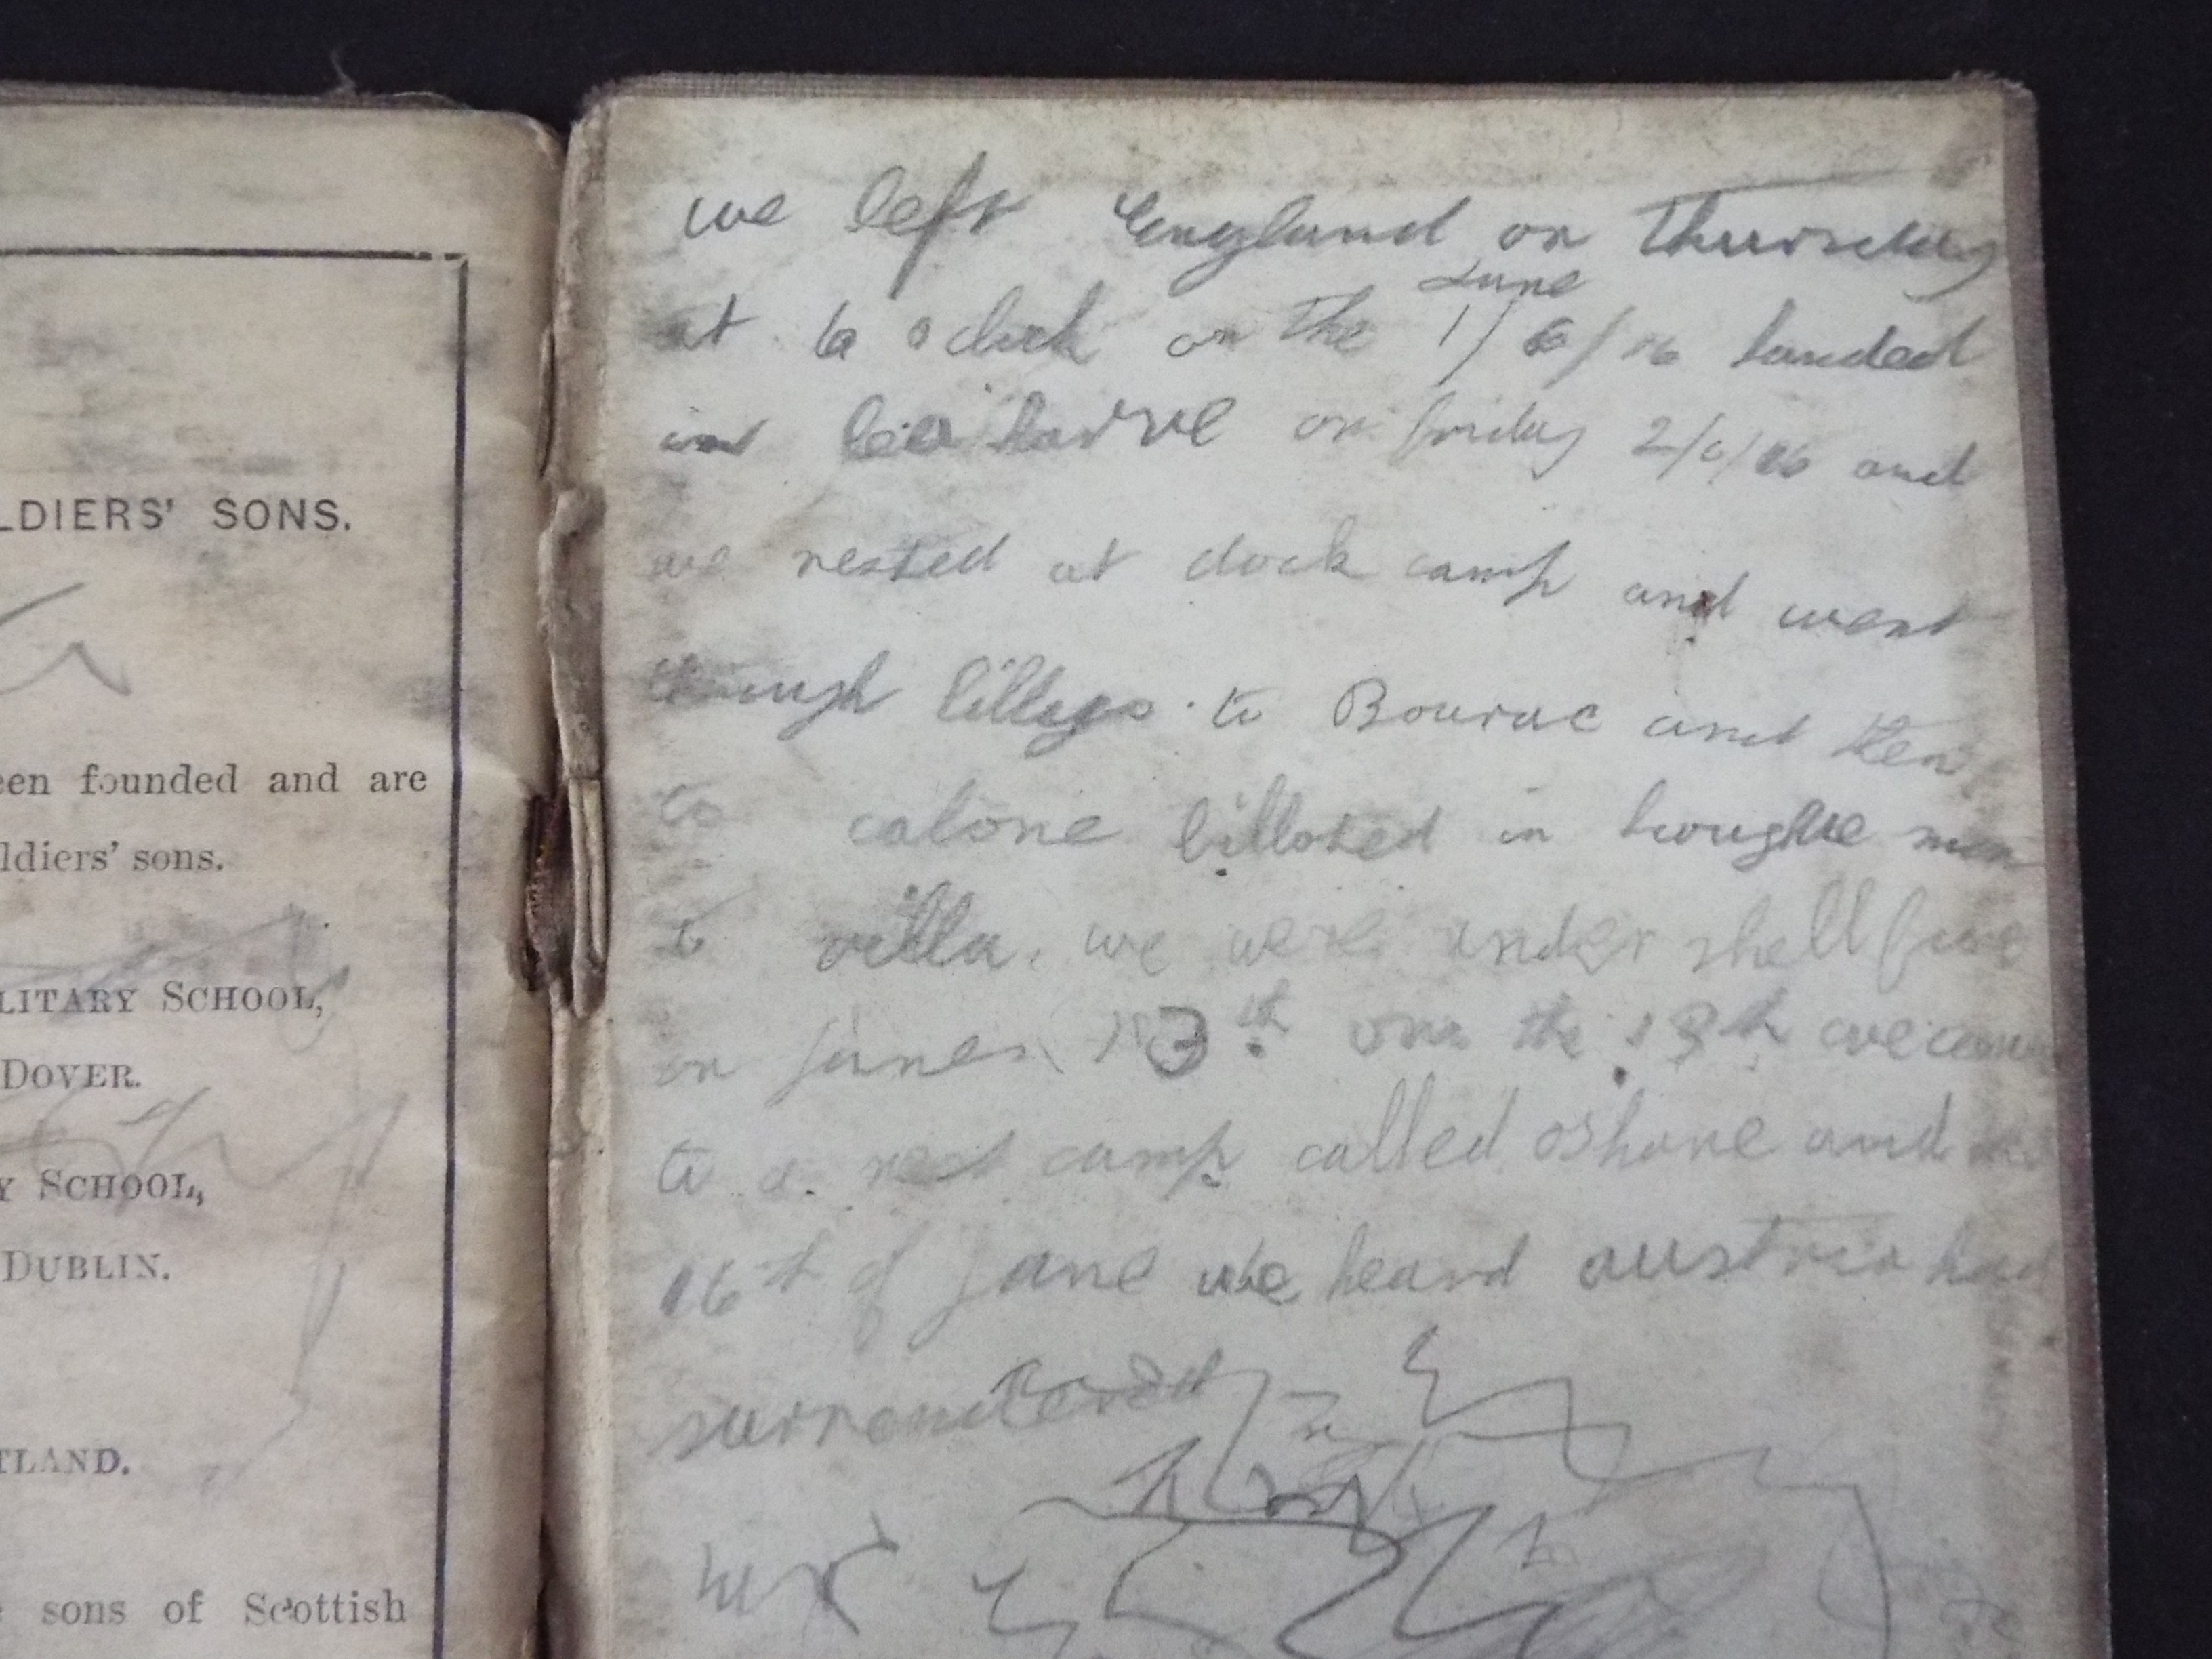 LDIERS' SONS.
een founded and are
ldiers' sons.
LITARY SCHOOL,
DOVER.
Y SCHOOL,
DUBLIN.
TLAND.
sons of Scottish
we left England on Thursday
June
at 6 oclock on the 1/6/16 landed
in on friday 2/6/16 and
we rested at dock camp and went
through to and then
to calone billoted in
to villa. we were under shell fire
on june 13th on the we
to a rest camp called and
16th of june we heard austria had
surrendered